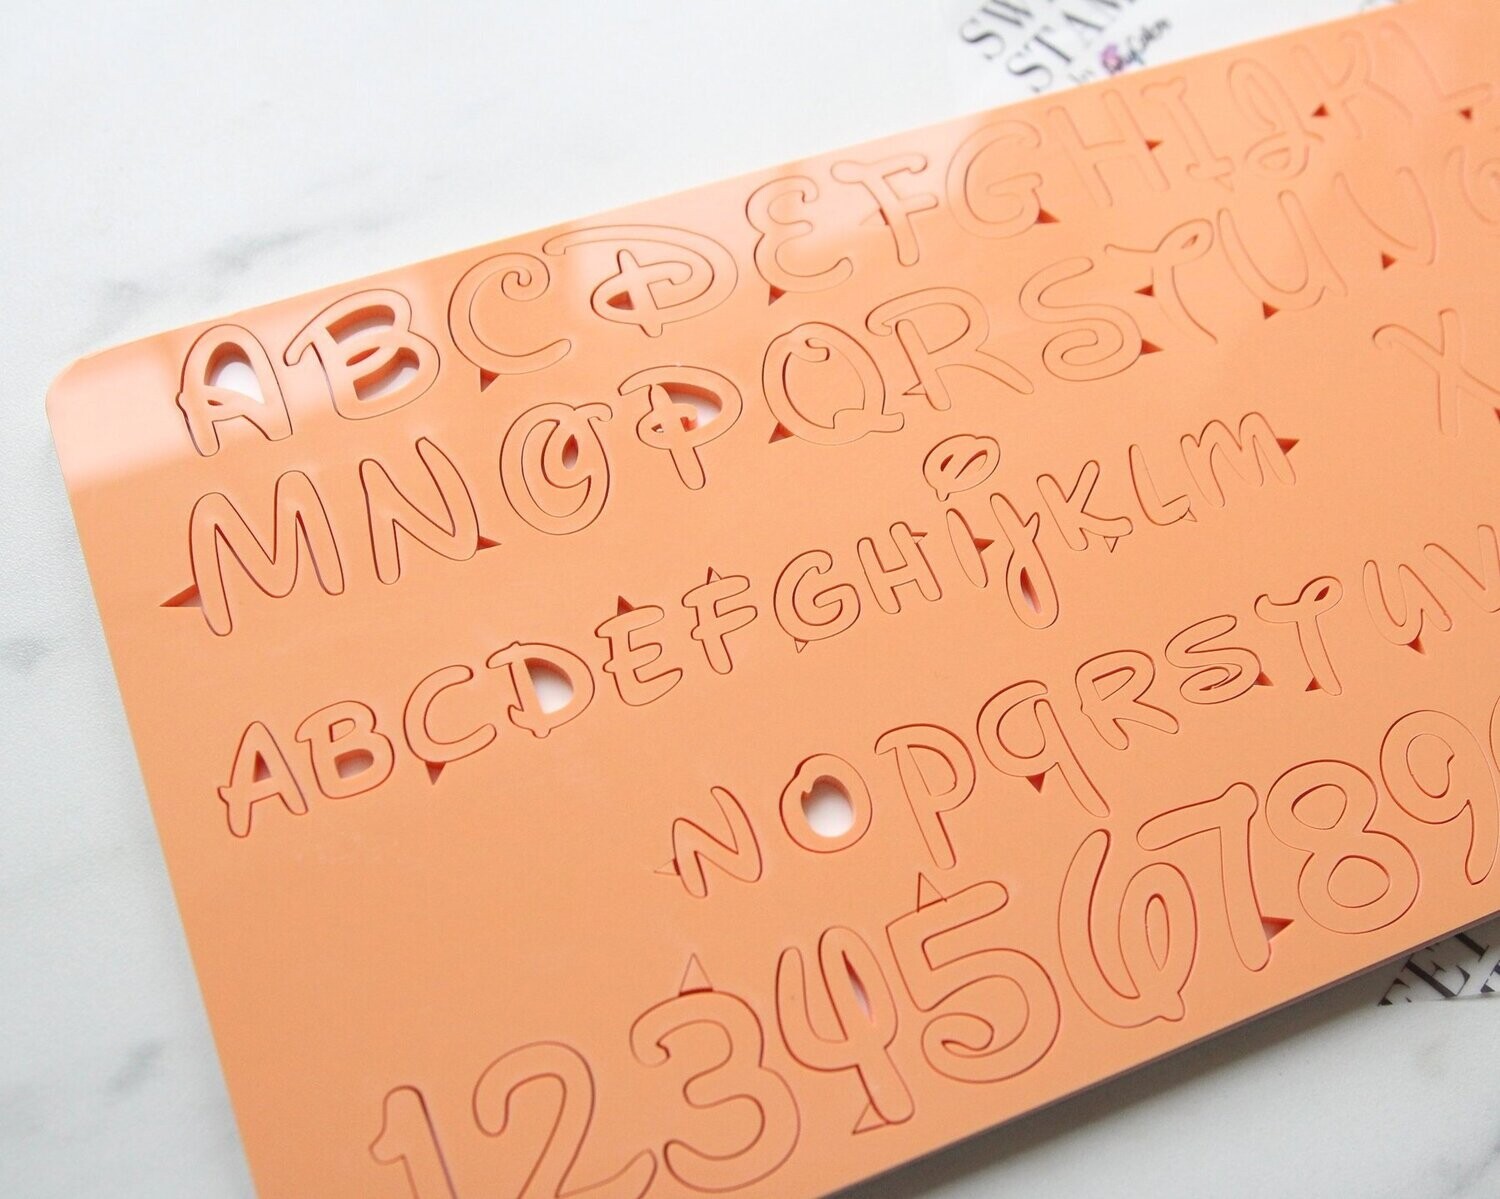 SW
STAM
by
A B C D E F G H I J K L
M N O P Q R S T U V
X
A B C D E F G H I J K L M
N O P Q R S T U V
1 2 3 4 5 6 7 8 9